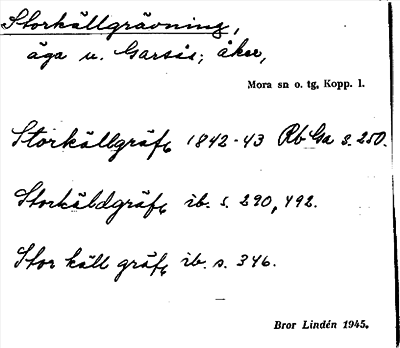 Storkällgrävning,
äga u. Garsås; åker,
Mora sn o. tg, Kopp. l.
Storkällgräfn 1842-43 Rb Ga s. 250.
Storkäldgräfn ib. s. 290, 492.
Stor käll gräfn ib. s. 346.
Bror Lindén 1945.